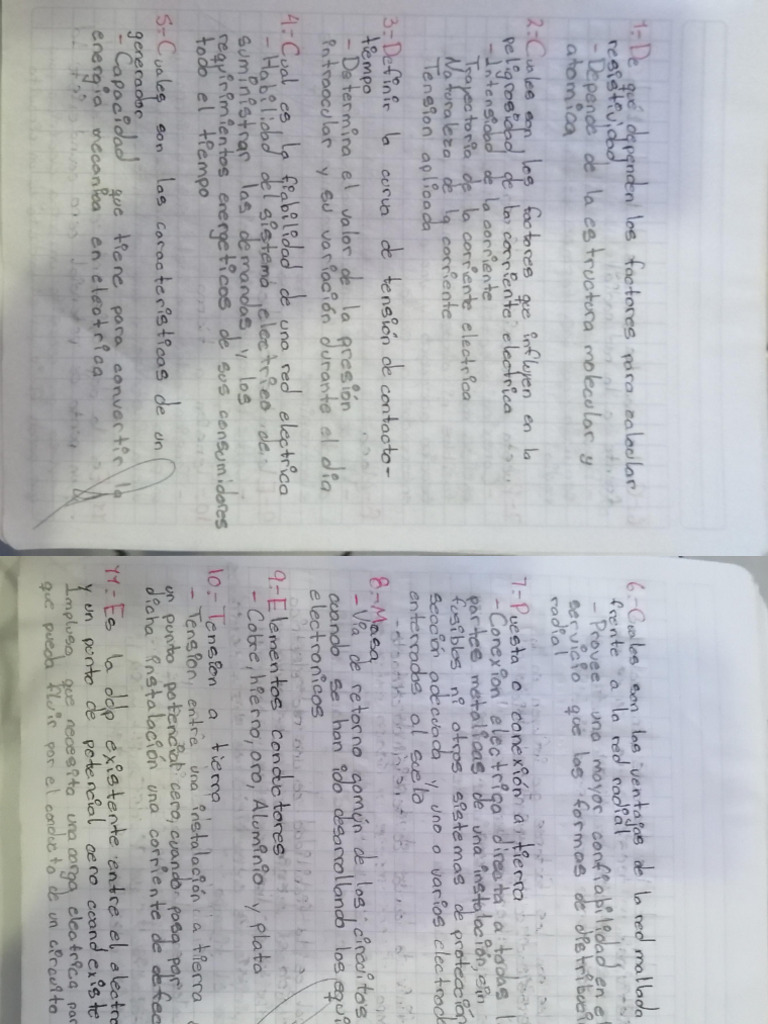 1=De qué dependen los factores para calcular
resistividad
- Depende de la estructura molecular y
atomica
2=Cuales son los factores que influyen en la
peligrosidad de la corriente electrica
- Intensidad de la corriente
Trayectoria de la corriente electrica
Naturaleza de la corriente
Tension aplicada
3=Definir la curva de tensión de contacto-
tiempo
- Determina el valor de la presión
intraocular y su variación durante el dia
4=Cual es la fiabilidad de una red electrica
- Habilidad del sistema electrico de
suministrar las demandas y los
requirimientos energeticos de sus consumidores
todo el tiempo
5=Cuales son las caracteristicas de un
generador
- Capacidad que tiene para convertir la
energia mecanica en electrica
6=Cuales son las ventajas de la red mallada
frente a la red radial
- Provee una mayor confiabilidad en e
servicio que las formas de distribuci
radial
7=Puesta o conexión a tierra
- Conexion electrica directa a todas l
partes metalicas de una instalación, sin
fusibles ni otros sistemas de protección
sección adecuada y uno o varios electrod
enterrados al suelo
8=Masa
- Via de retorno común de los circuitos
cuando se han ido desarrollando los equi
electronicos
9=Elementos conductores
- Cobre, hierro, oro, Aluminio y plata
10=Tension a tierra
- Tension entre una instalación a tierra
un punto potencial cero, cuando pasa por
dicha instalación una corriente de defec
11=Es la ddp existente entre el electro
y un punto de potencial cero cuand existe
Impluso que necesita una carga electrica par
que pueda fluir por el conducto de un circuito